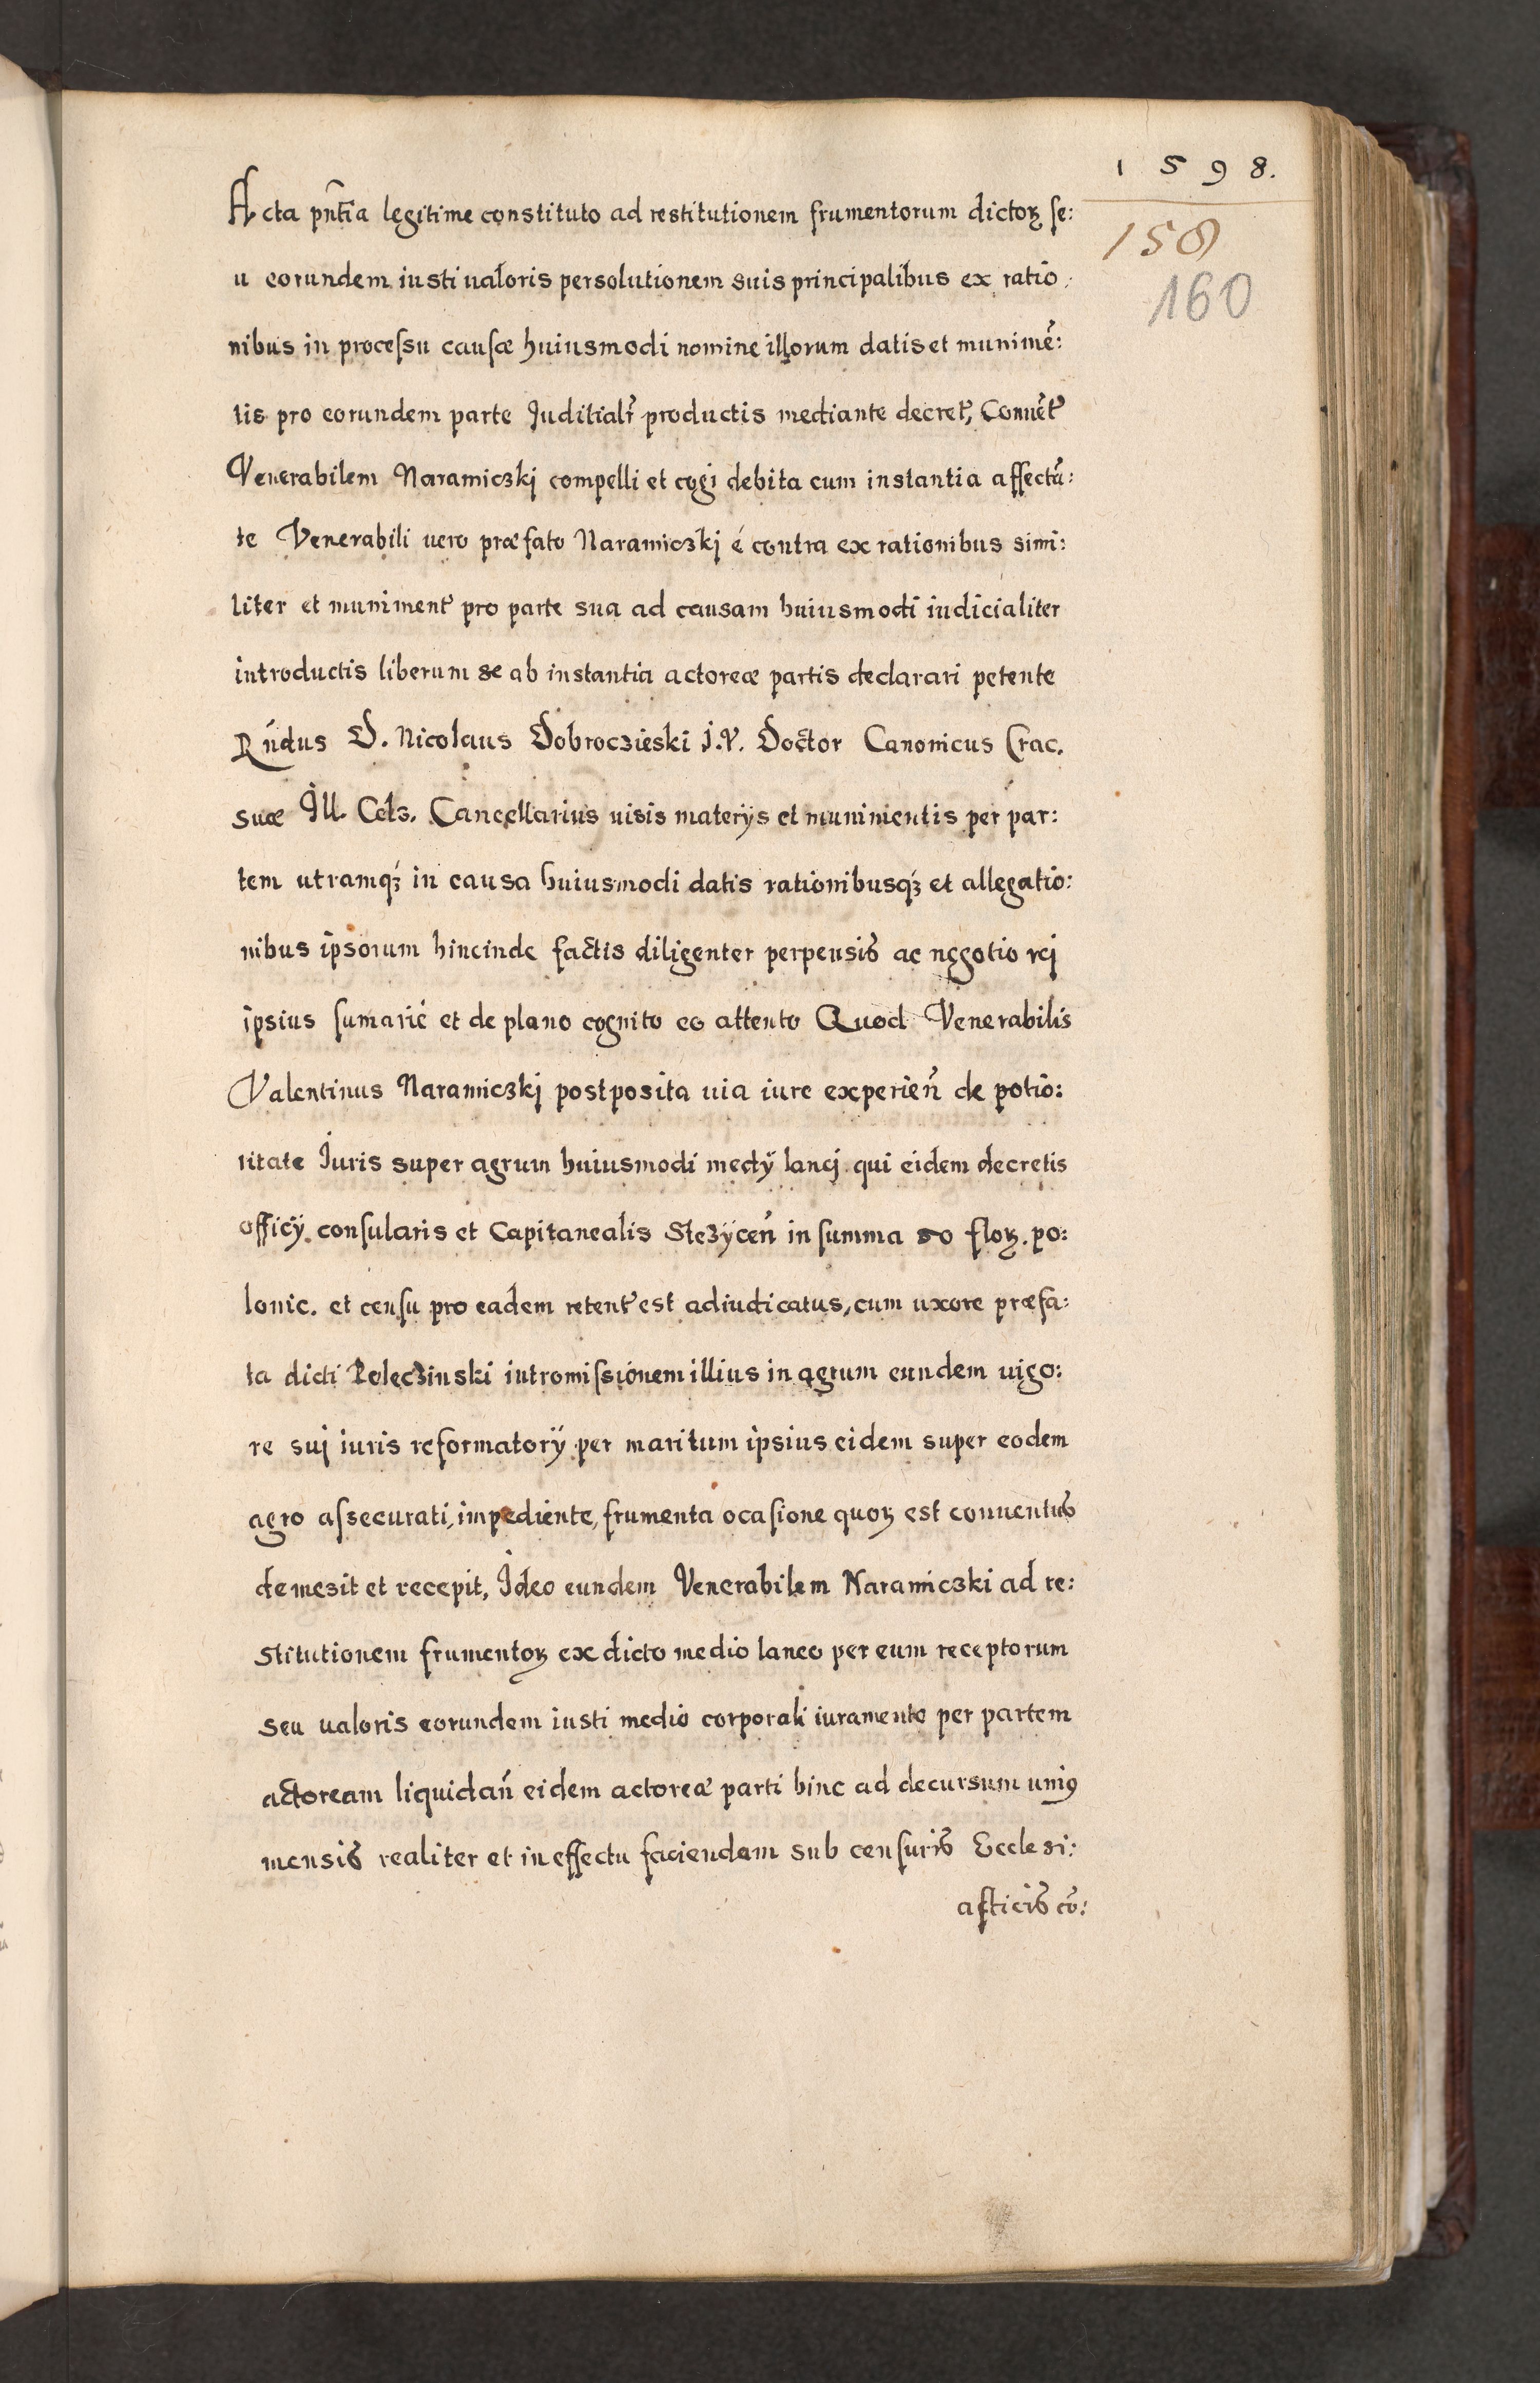 1598.
158
160
Acta pn̄tia legitime constituto ad restitutionem frumentorum dictoꝝ se:
u eorundem iusti ualoris persolutionem suis principalibus ex ratio
nibus in processu causæ huiusmodi nomine illorum datis et munimē:
tis pro eorundem parte Juditialr̄ productis mediante decret, Conuēt
Venerabilem Naramiczkj compelli et cogi debita cum instantia affectā:
te Venerabili uero præfato Naramiczkj é contra ex rationibus simi:
liter et muniment pro parte sua ad causam huiusmodi iudicialiter
introductis liberum se ab instantia actoreæ partis declarari petente
Rn̄dus D. Nicolaus Dobroczieski J.V. Doctor Canonicus Crac.
suæ Ill. Cels. Cancellarius uisis materijs et munimentis per par:
tem utramqꝫ in causa huiusmodi datis rationibusqꝫ et allegatio:
nibus ipsorum hincinde factis diligenter perpensis ac negotio rej
ipsius sumarié et de plano cognito eo attento Quod Venerabilis
Valentinus Naramiczkj postposita uia iure experien̄ de potio:
ritate Juris super agrum huiusmodi medij lanej qui eidem decretis
officij consularis et Capitanealis Stezÿcen̄ in summa 50 floꝝ. po:
lonic. et censu pro eadem retent est adiudicatus, cum uxore præfa:
ta dicti Poleczinski intromissionem illius in agrum eundem uigo:
re suj iuris reformatorij per maritum ipsius eidem super eodem
agro assecurati, impediente, frumenta ocasione quoꝝ est conuentus
demesit et recepit, Ideo eundem Venerabilem Naramiczki ad re:
stitutionem frumentoꝝ ex dicto medio laneo per eum receptorum
seu ualoris eorundem iusti medio corporali iuramento per partem
actoream liquidan̄ eidem actoreæ parti hinc ad decursum uniꝰ
mensis realiter et in effectu faciendam sub censuris Ecclesi:
asticis cō: